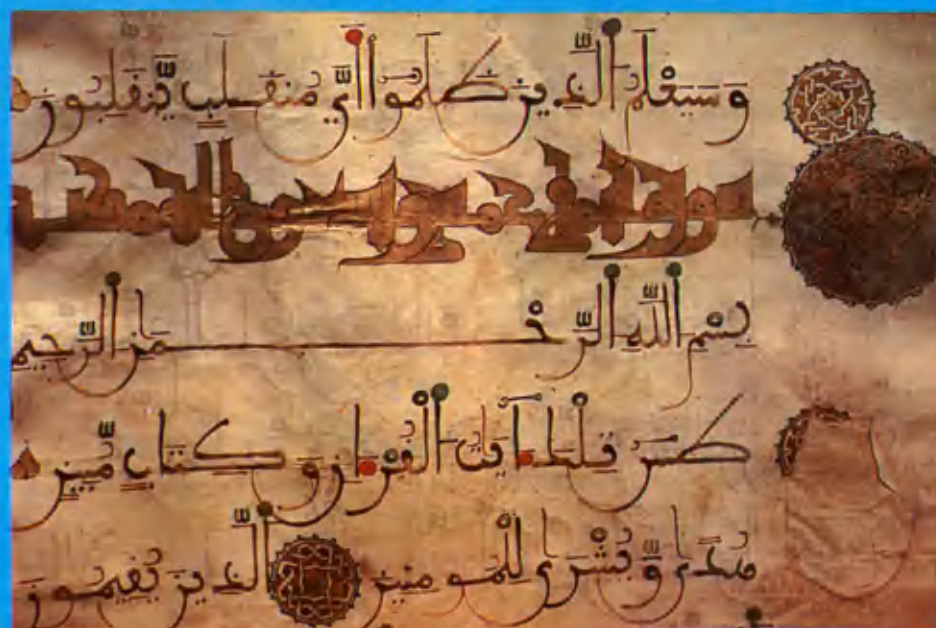 وَسَيَعْلَمُ الَّذِينَ ظَلَمُوا أَيَّ مُنقَلَبٍ يَّنقَلِبُونَ
سورة النمل
بِسْمِ اللَّهِ الرَّحْمَنِ الرَّحِيمِ
طسَ تِلْكَ ءَايَاتُ الْقُرْءَانِ وَكِتَابٍ مُّبِينٍ
هُدًى وَّبُشْرَى لِلْمُومِنِينَ الَّذِينَ يُقِيمُونَ